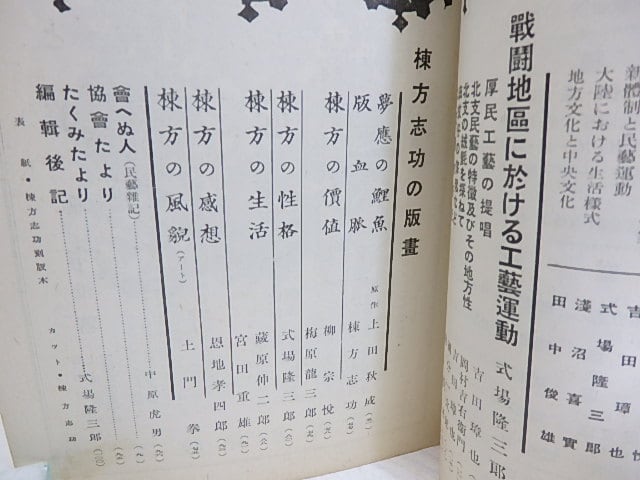 新體制と民藝運動
大陸における生活樣式
地方文化と中央文化
吉田璋也
式場隆三郎
淺沼喜實
田中俊雄
戰鬪地區に於ける工藝運動 式場隆三郎
厚民工藝の提唱 吉田璋也
北支民藝の特徵及びその地方性
北支の絨氈を尋ねて
棟方志功の版畫
夢應の鯉魚 原作 上田秋成
版血脈 棟方志功
棟方の價値 柳宗悅
梅原龍三郎
棟方の性格 式場隆三郎
藏原伸二郎
棟方の生活 宮田重雄
棟方の感想 恩地孝四郎
棟方の風貌(アート) 土門拳
會へぬ人(民藝雜記) 中原虎男
協會だより
たくみだより
編輯後記 式場隆三郎
表紙・棟方志功刻版木 カット・棟方志功